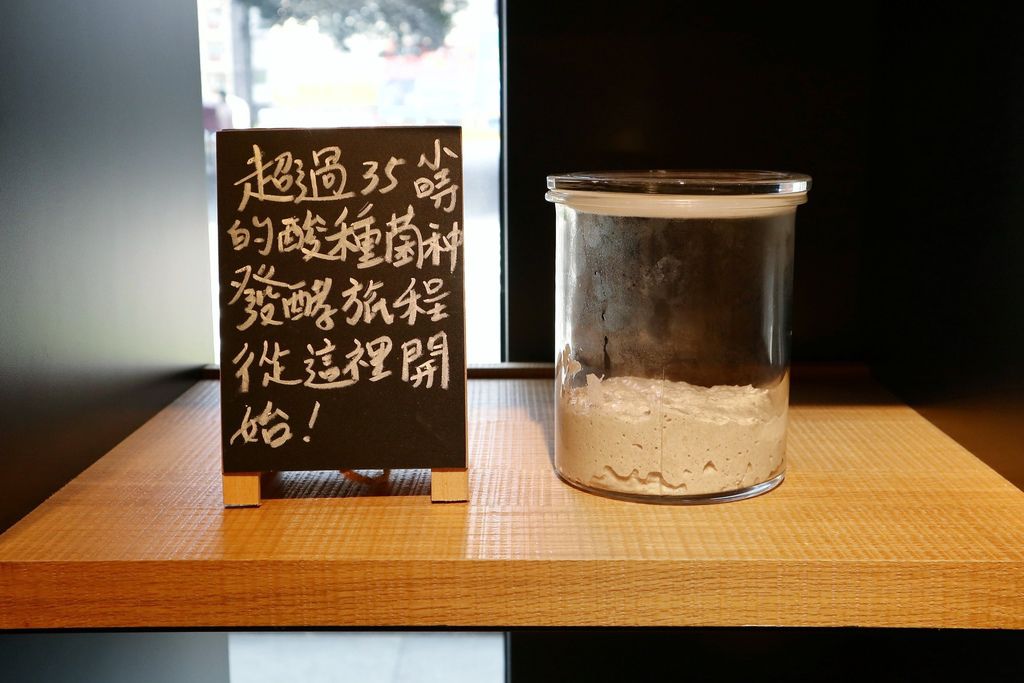 超過35小時
的酸種菌种
發酵旅程
從這裡開
始！